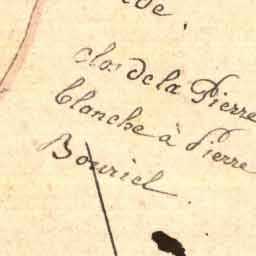 clos de la Pierre
blanche à Pierre
Bouriel.